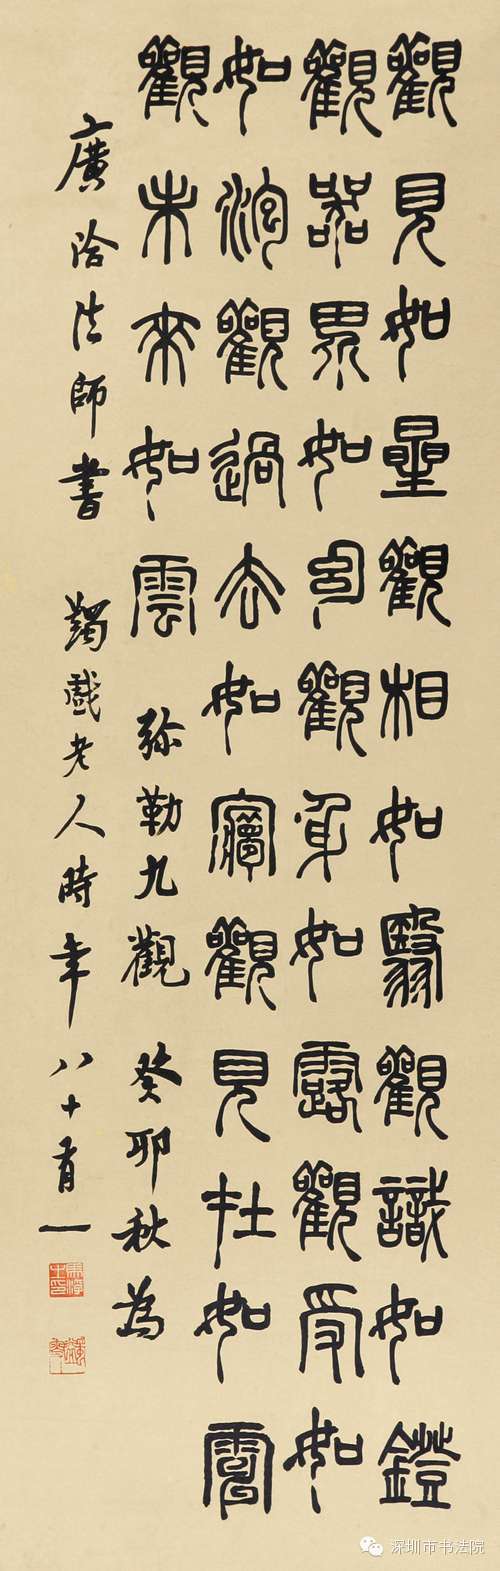 觀見如星觀相如翳觀識如鐙
觀器界如幻觀身如露觀受如
如泡觀過去如夢觀見在如電
觀未來如雲 弥勒九觀 癸卯秋為
廣洽法師書 蠲戲老人時年八十有一
深圳市书法院